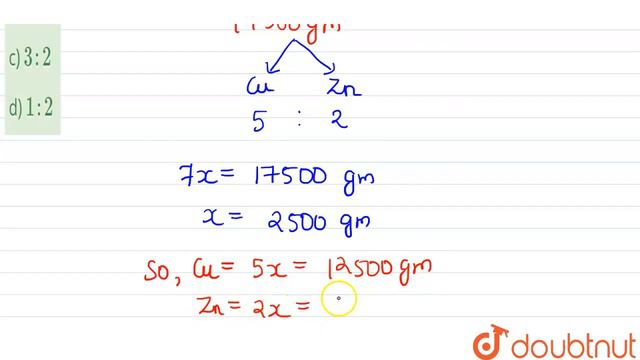 17500 gm
c) 3 : 2
Cu Zn
d) 1 : 2
5 : 2
7x = 17500 gm
x = 2500 gm
So, Cu = 5x = 12500 gm
Zn = 2x =
doubtnut